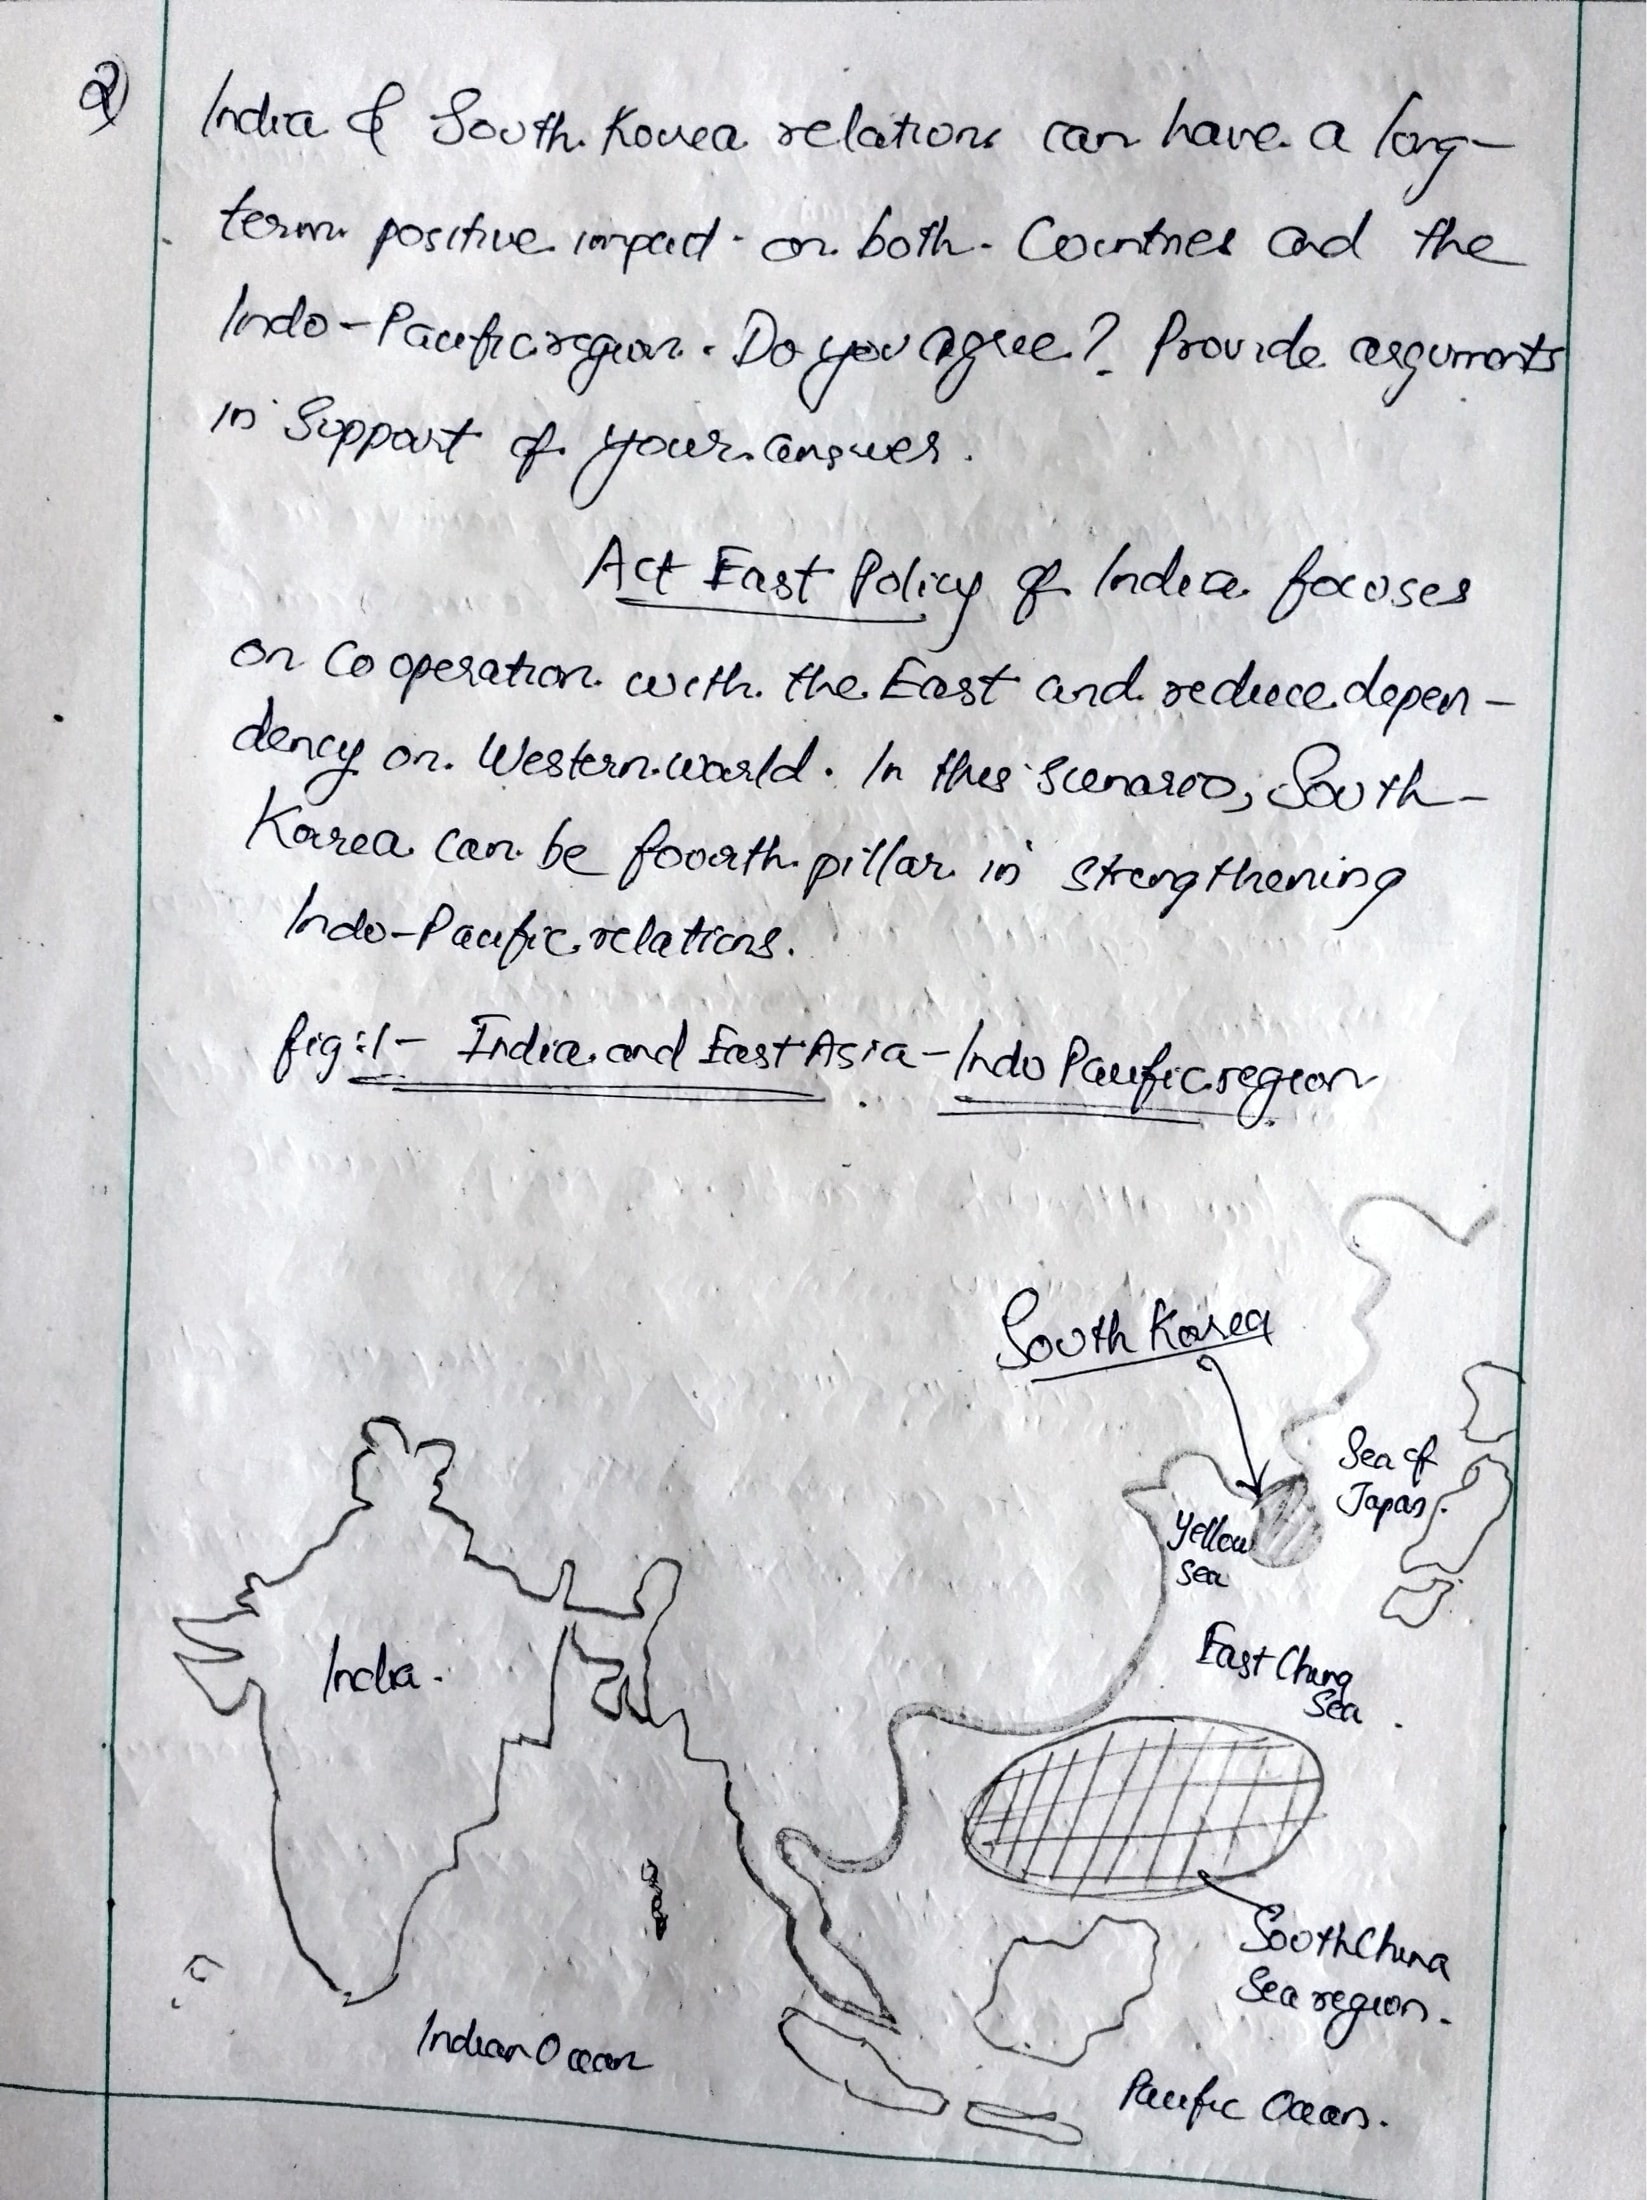 2)
India & South Korea relations can have a long-
term positive impact on both Countries and the
Indo-Pacific region. Do you agree? Provide arguments
in Support of your answer.
Act East Policy of India focuses
on Cooperation with the East and reduce depen-
dency on Western world. In this scenario, South
Korea can be fourth pillar in strengthening
Indo-Pacific relations.
fig:1- India and East Asia - Indo Pacific region
South Korea
Sea of
Japan.
Yellow
Sea
East China
Sea
India.
South China
Sea region.
Indian Ocean
Pacific Ocean.